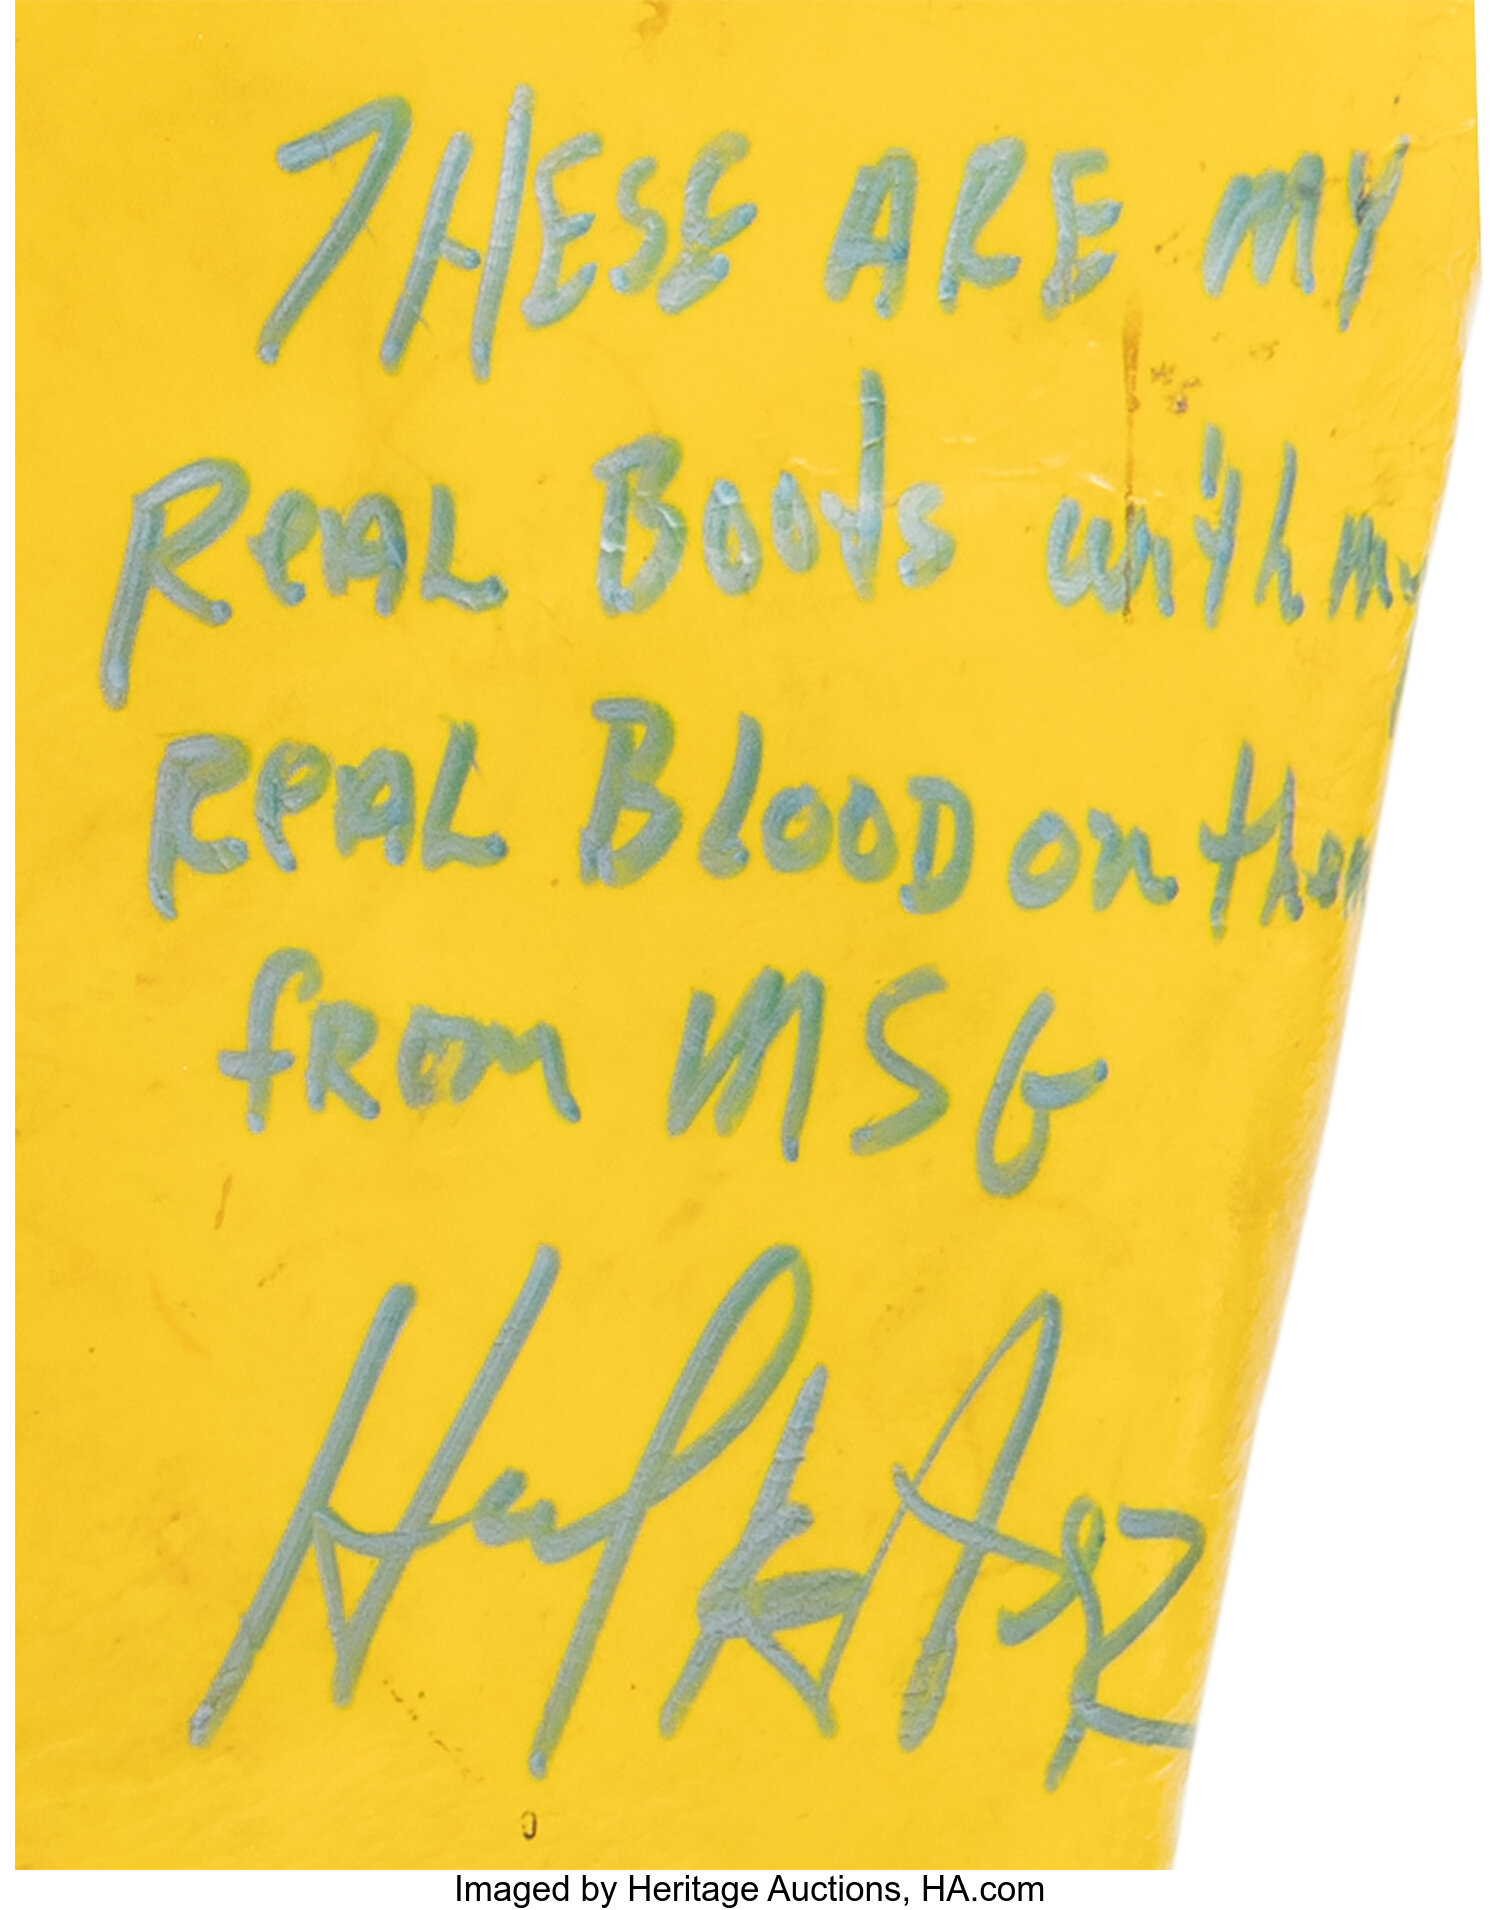 THESE ARE MY
REAL Boots with my
REAL BLOOD on them
fROm MSG
Hulk Hogan
Imaged by Heritage Auctions, HA.com